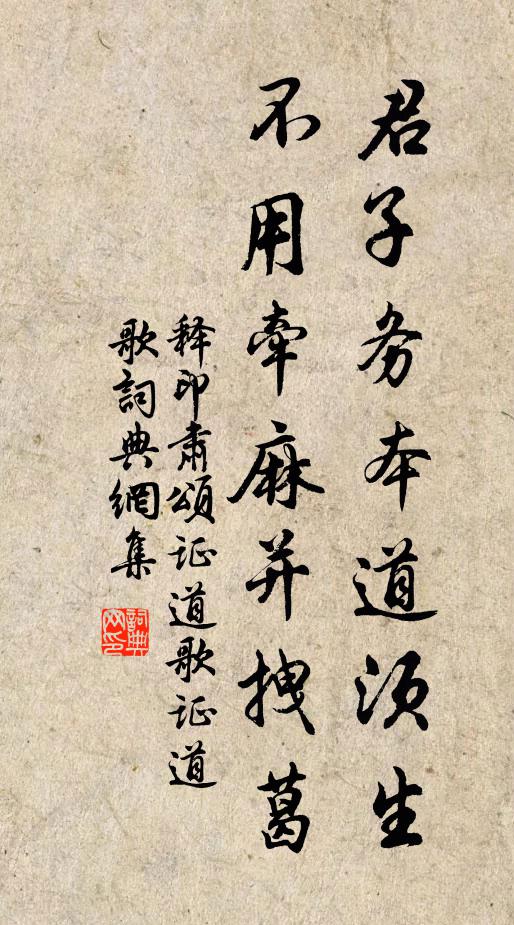 君子务本道须生
不用牵麻并拽葛
释印肃颂证道歌证道
歌詞典網集
詞典网印